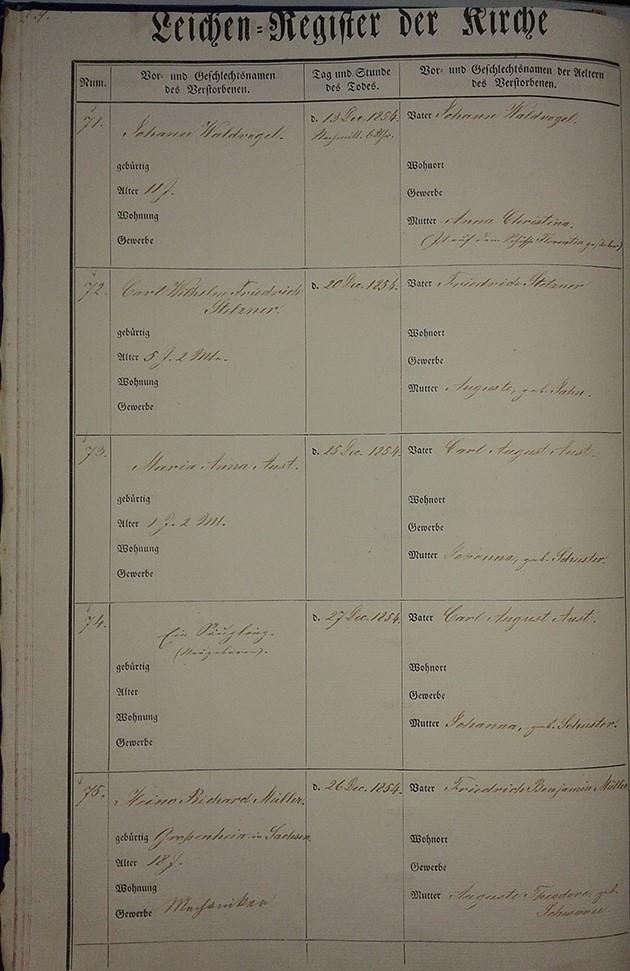 Leichen=Register der Kirche
Num.
Vor= und Geschlechtsnamen
des Verstorbenen.
Tag und Stunde
des Todes.
Vor= und Geschlechtsnamen der Aeltern
des Verstorbenen.
71.
Johann Waldvogel.
d. 13 Dec. 1854.
Nachmitt. 6 Uhr.
Vater Johann Waldvogel.
gebürtig
Wohnort
Alter 11 J.
Gewerbe
Wohnung
Mutter Anna Christina.
Gewerbe
(Ist auf dem Schiffe Florentin gestorben)
72.
Carl Wilhelm Friedrich
Stelzner.
d. 20 Dec. 1854.
Vater Friedrich Stelzner
gebürtig
Wohnort
Alter 5 J. 2 Mt.
Gewerbe
Wohnung
Mutter Auguste, geb. Jahn.
Gewerbe
73.
Maria Anna Aust.
d. 25 Dec. 1854.
Vater Carl August Aust.
gebürtig
Wohnort
Alter 1 J. 2 Mt.
Gewerbe
Wohnung
Mutter Johanna, geb. Schuster.
Gewerbe
74.
Ein Säugling.
(Neugeboren).
d. 27 Dec. 1854.
Vater Carl August Aust.
gebürtig
Wohnort
Alter
Gewerbe
Wohnung
Mutter Johanna, geb. Schuster.
Gewerbe
75.
Heino Richard Müller.
d. 26 Dec. 1854.
Vater Friedrich Benjamin Müller
gebürtig Großenhain in Sachsen.
Wohnort
Alter 18 J.
Gewerbe
Wohnung
Mutter Auguste Theodore, geb.
Gewerbe Mechaniker